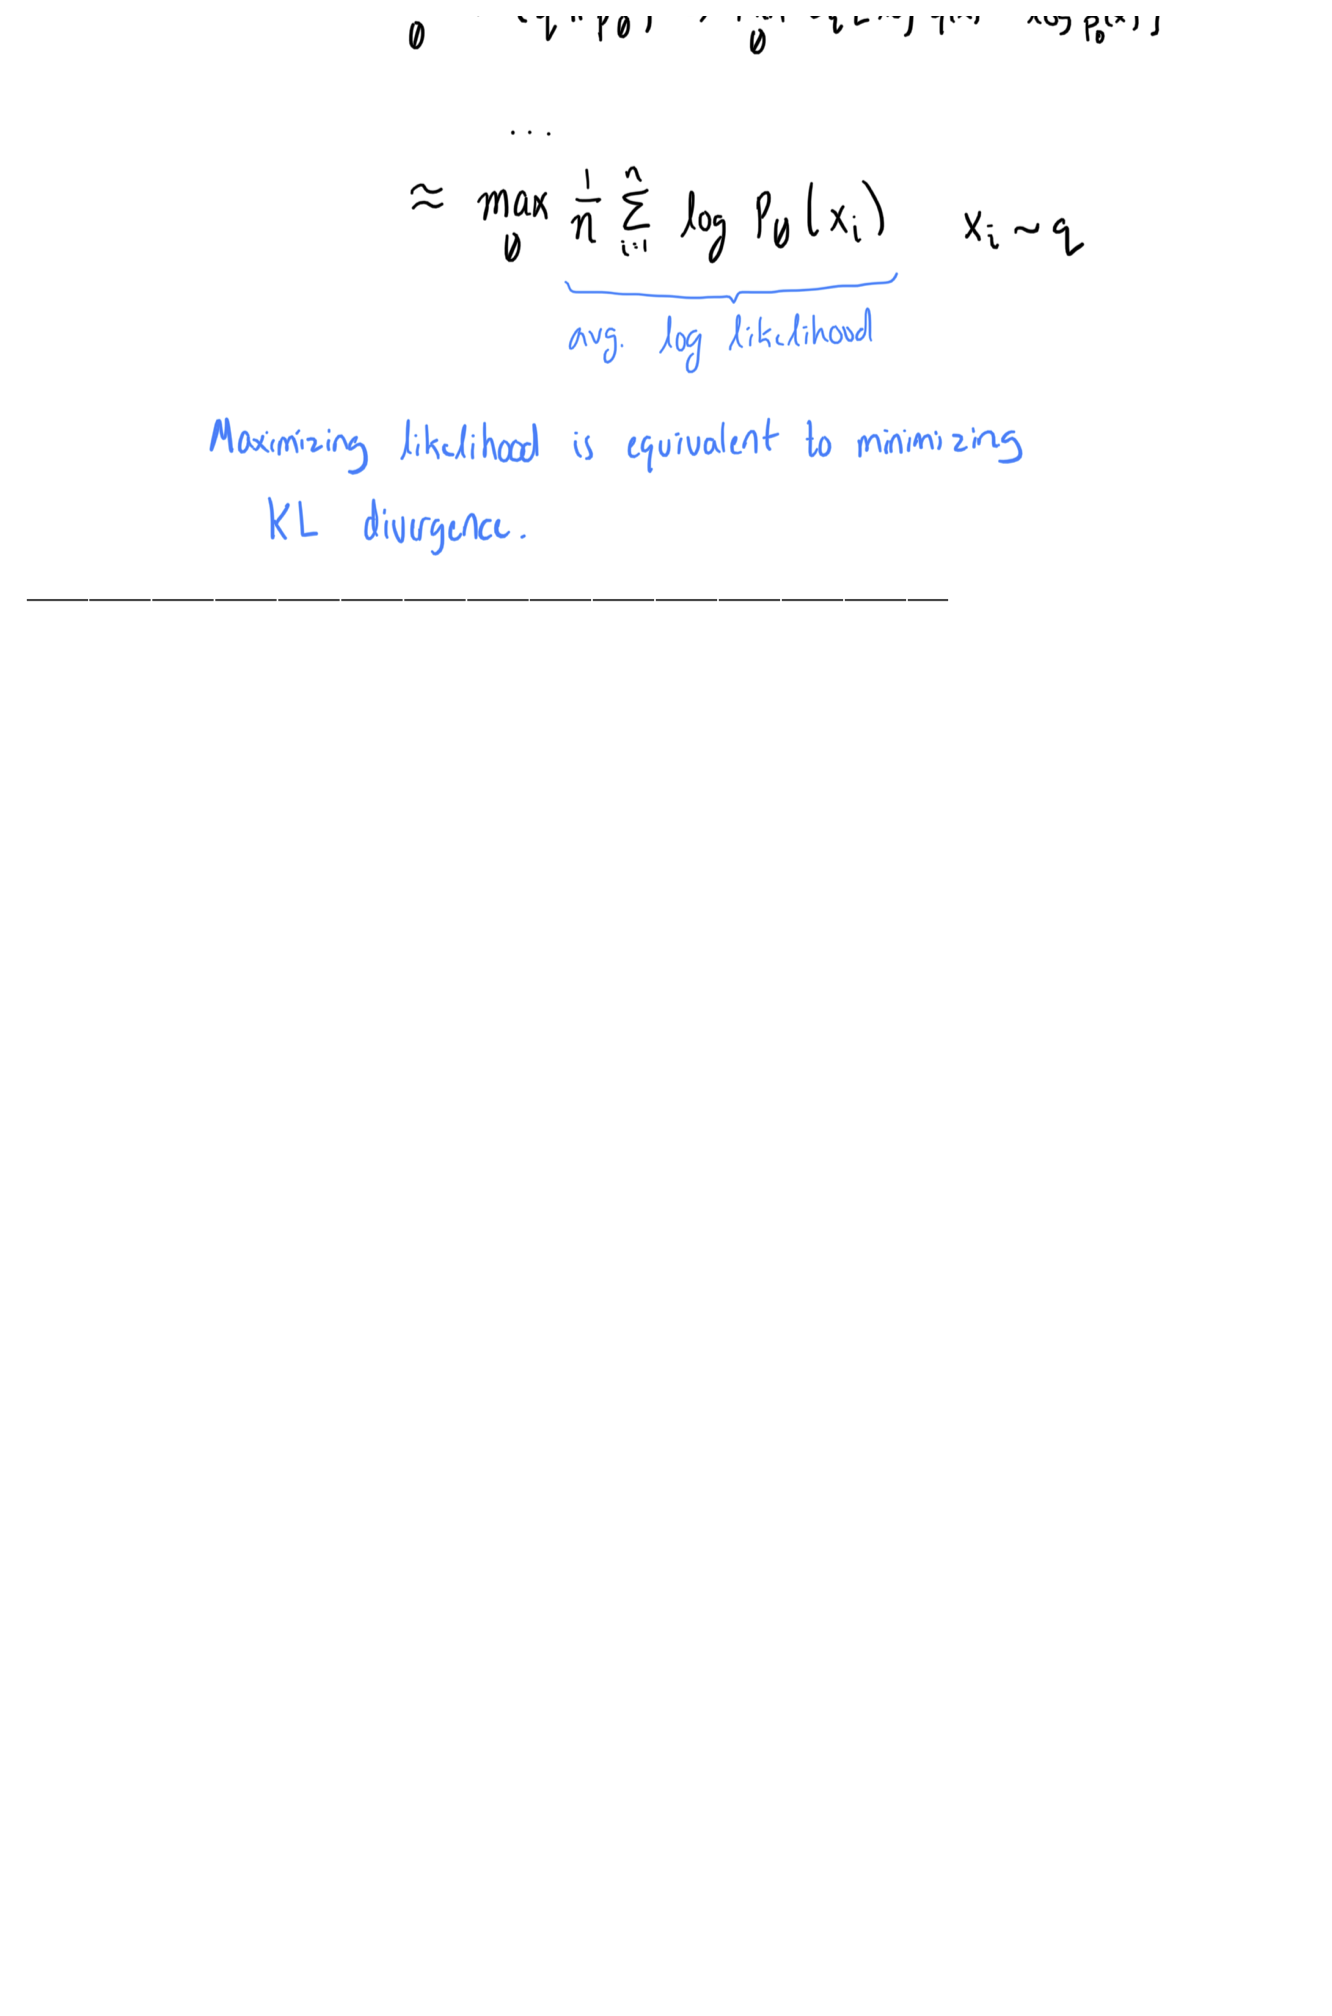 ...
≈ max_θ 1/n Σ_{i=1}^n log P_θ(x_i) x_i ~ q
avg. log likelihood
Maximizing likelihood is equivalent to minimizing
KL divergence.